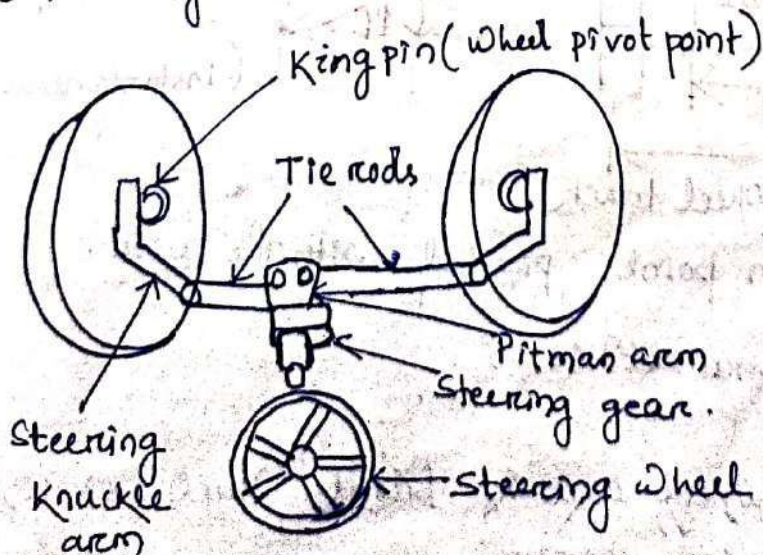 King pin (wheel pivot point)
Tie rods
Pitman arm
Steering gear.
Steering
Knuckle
arm
Steering wheel